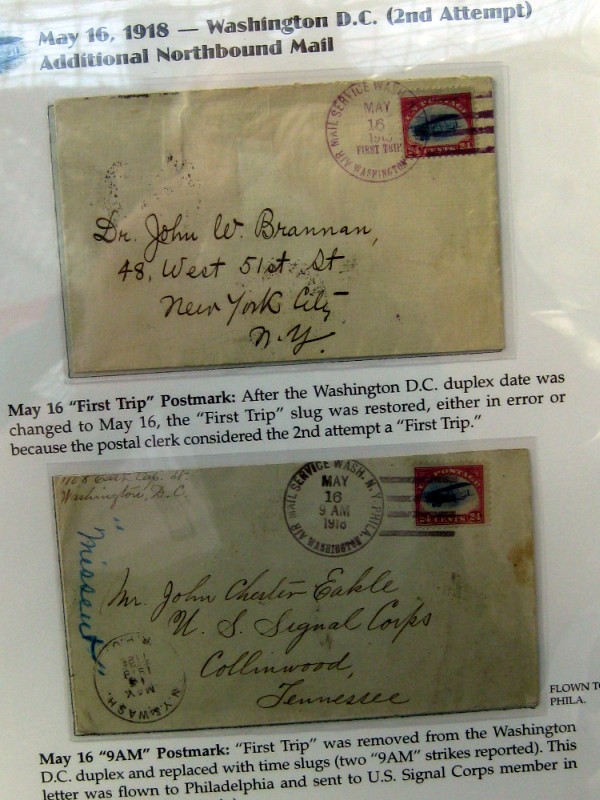 May 16, 1918 — Washington D.C. (2nd Attempt)
Additional Northbound Mail
AIR MAIL SERVICE WASH.
MAY
16
FIRST TRIP
WASHINGTON
U.S. POSTAGE
24 CENTS 24
Dr. John W. Brannan,
48, West 51st St.
New York City
N.Y.
May 16 "First Trip" Postmark: After the Washington D.C. duplex date was
changed to May 16, the "First Trip" slug was restored, either in error or
because the postal clerk considered the 2nd attempt a "First Trip."
Cap. St.
Washington, D.C.
AIR MAIL SERVICE WASH. N.Y. PHILA.
MAY
16
9 AM
1918
WASHINGTON
U.S. POSTAGE
24 CENTS 24
"Missent"
Mr. John Chester Eakle
U. S. Signal Corps
Collinwood,
Tennessee
N.Y. & WASH.
MAY
FLOWN TO
PHILA.
May 16 "9AM" Postmark: "First Trip" was removed from the Washington
D.C. duplex and replaced with time slugs (two "9AM" strikes reported). This
letter was flown to Philadelphia and sent to U.S. Signal Corps member in